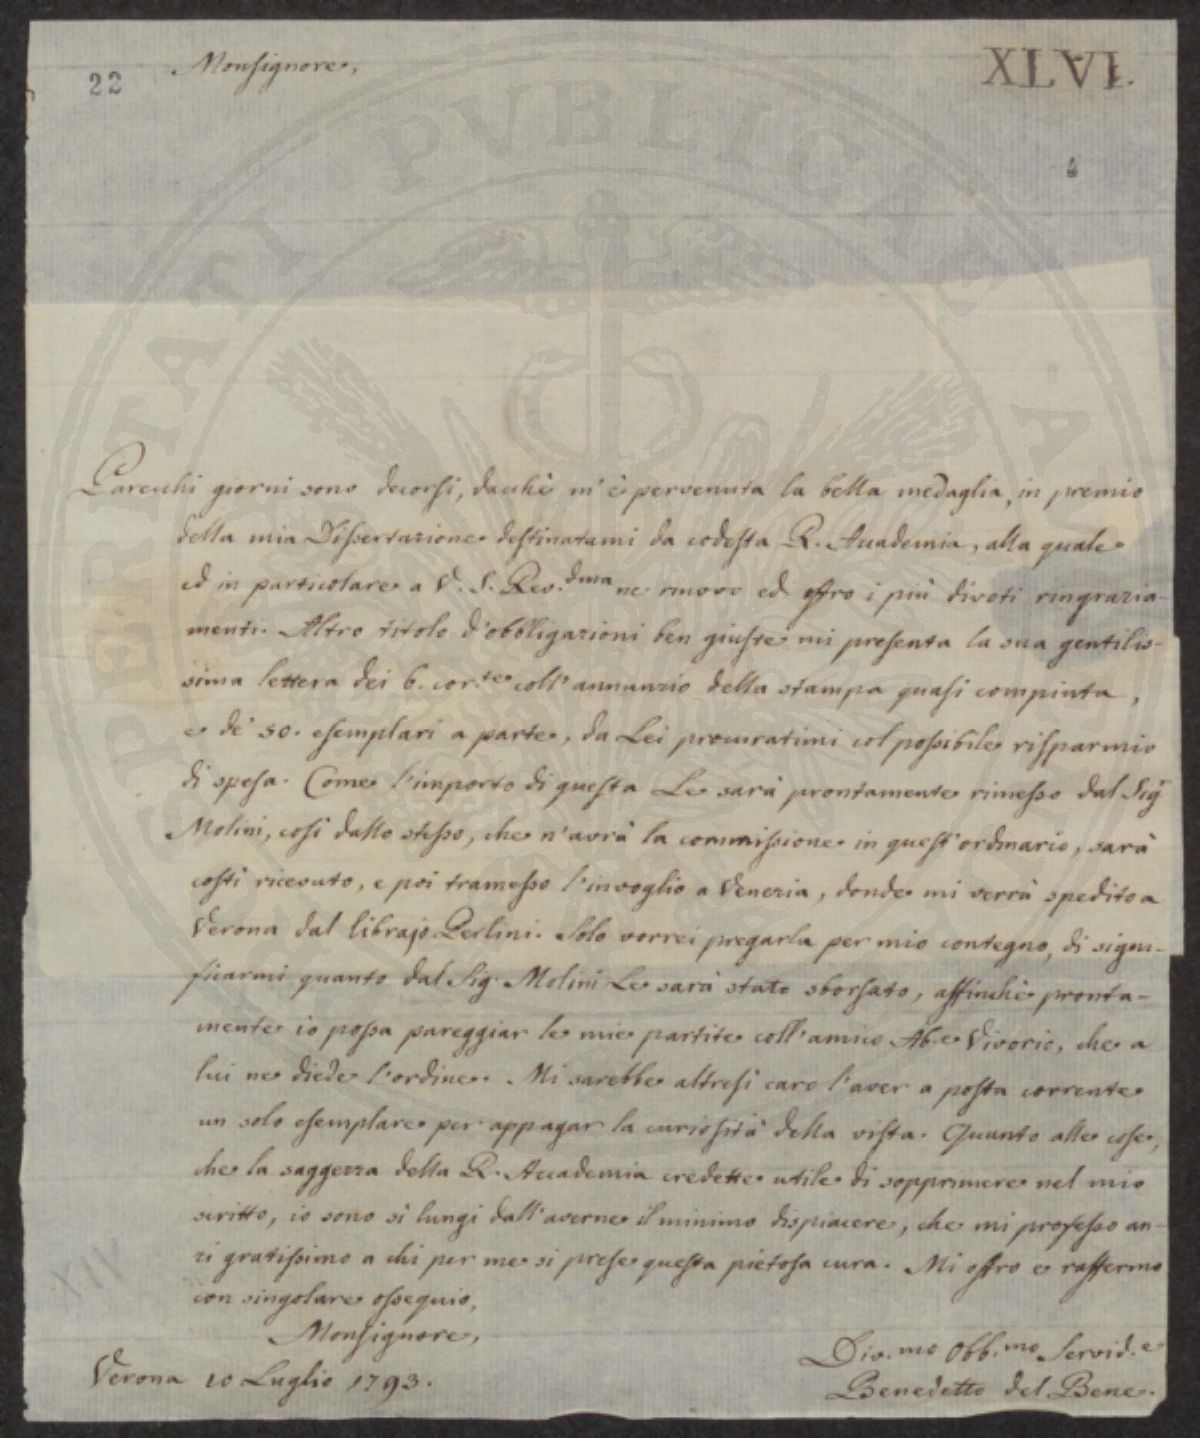 Monsignore,
22
XLVI.
4
Parecchi giorni sono decorsi, dacchè m'è pervenuta la bella medaglia, in premio
della mia Dissertazione destinatami da codesta R. Accademia, alla quale
ed in particolare a V. S. Rev.dma ne rinovo ed offro i più divoti ringrazia-
menti. Altro titolo d'obbligazioni ben giuste mi presenta la sua gentilis-
sima lettera dei 6. cor.te coll'annunzio della stampa quasi compiuta,
e de' 50. esemplari a parte, da Lei procuratimi col possibile risparmio
di spesa. Come l'importo di questa Le sarà prontamente rimesso dal Sigr
Molini, così dallo stesso, che n'avrà la commissione in quest'ordinario, sarà
costì ricevuto, e poi tramesso l'invoglio a Venezia, donde mi verrà spedito a
Verona dal librajo Perlini. Solo vorrei pregarla per mio contegno, di signi-
ficarmi quanto dal Sig. Molini Le sarà stato sborsato, affinchè pronta-
mente io possa pareggiar le mie partite coll'amico Ab.e Vivorio, che a
lui ne diede l'ordine. Mi sarebbe altresì caro l'aver a posta corrente
un solo esemplare per appagar la curiosità della vista. Quanto alle cose,
che la saggezza della R. Accademia credette utile di sopprimere nel mio
scritto, io sono sì lungi dall'averne il minimo dispiacere, che mi professo an-
zi gratissimo a chi per me si prese questa pietosa cura. Mi offro e raffermo
con singolare ossequio,
Monsignore,
Verona 10 Luglio 1793.
Div.mo Obb.mo Servid.e
Benedetto del Bene.
XIV
PUBLICAE